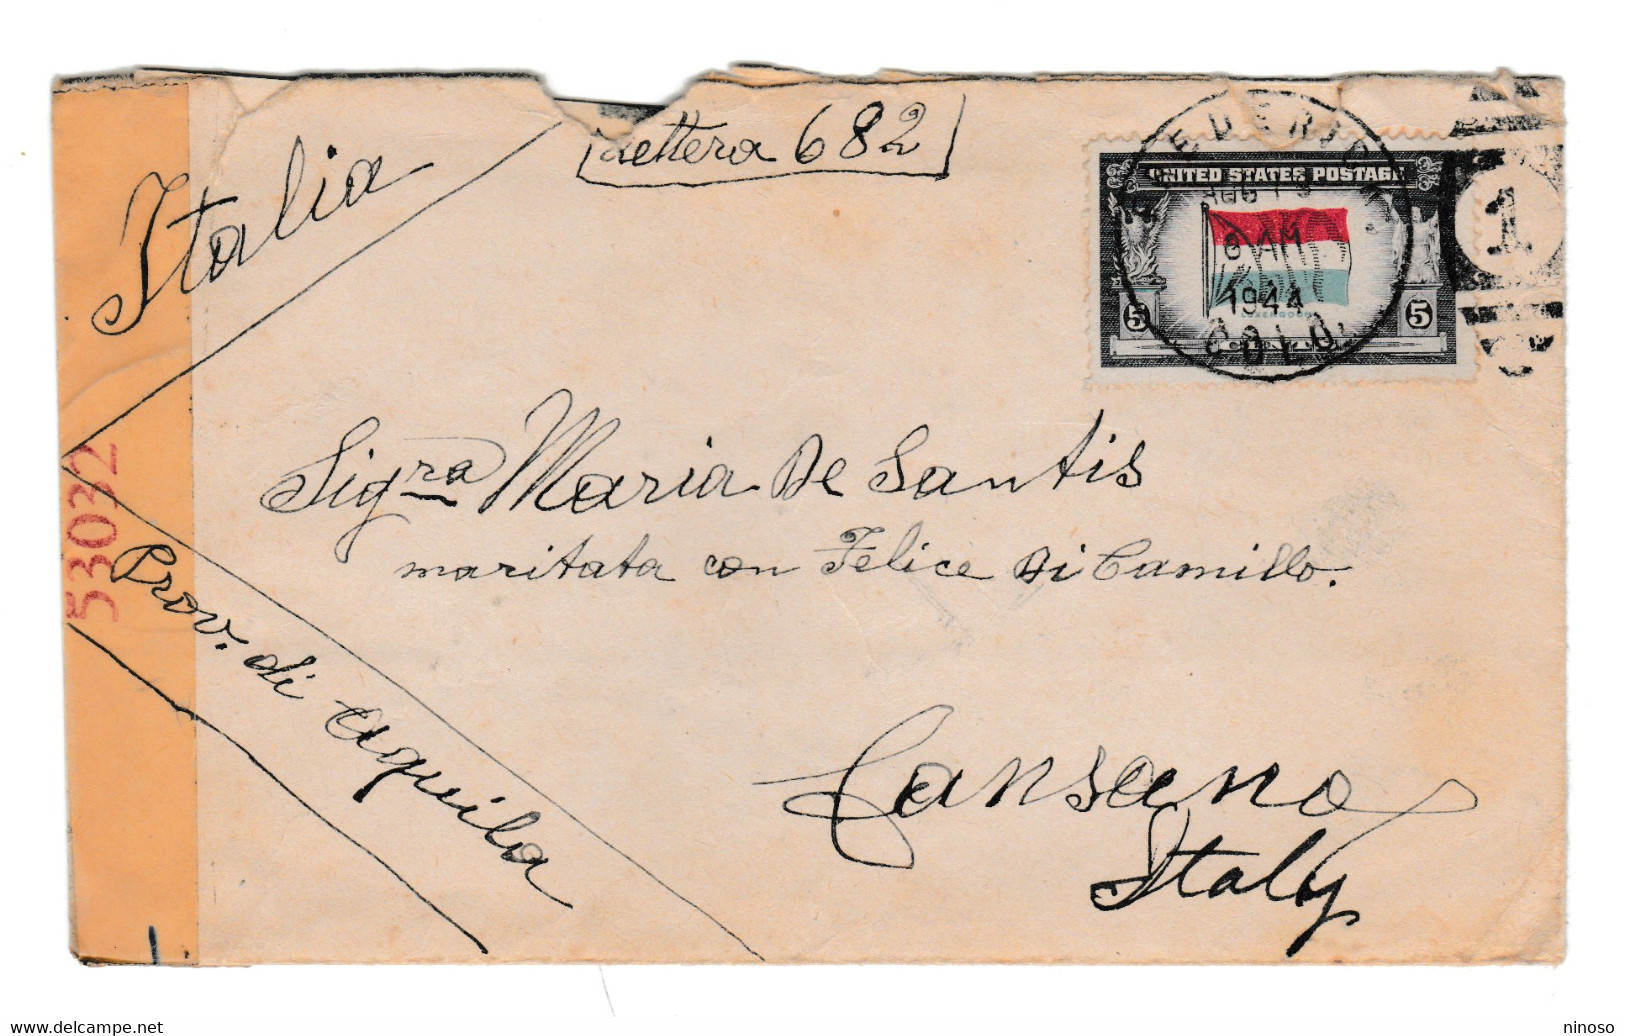 Italia
Lettera 682
UNITED STATES POSTAGE
AUG
8 AM
1944
COLO.
LUXEMBOURG
5 CENTS 5
1
Sigra Maria De Santis
maritata con Felice Di Camillo.
53032
Prov. di Aquila
Cansano
Italy
www.delcampe.net
ninoso